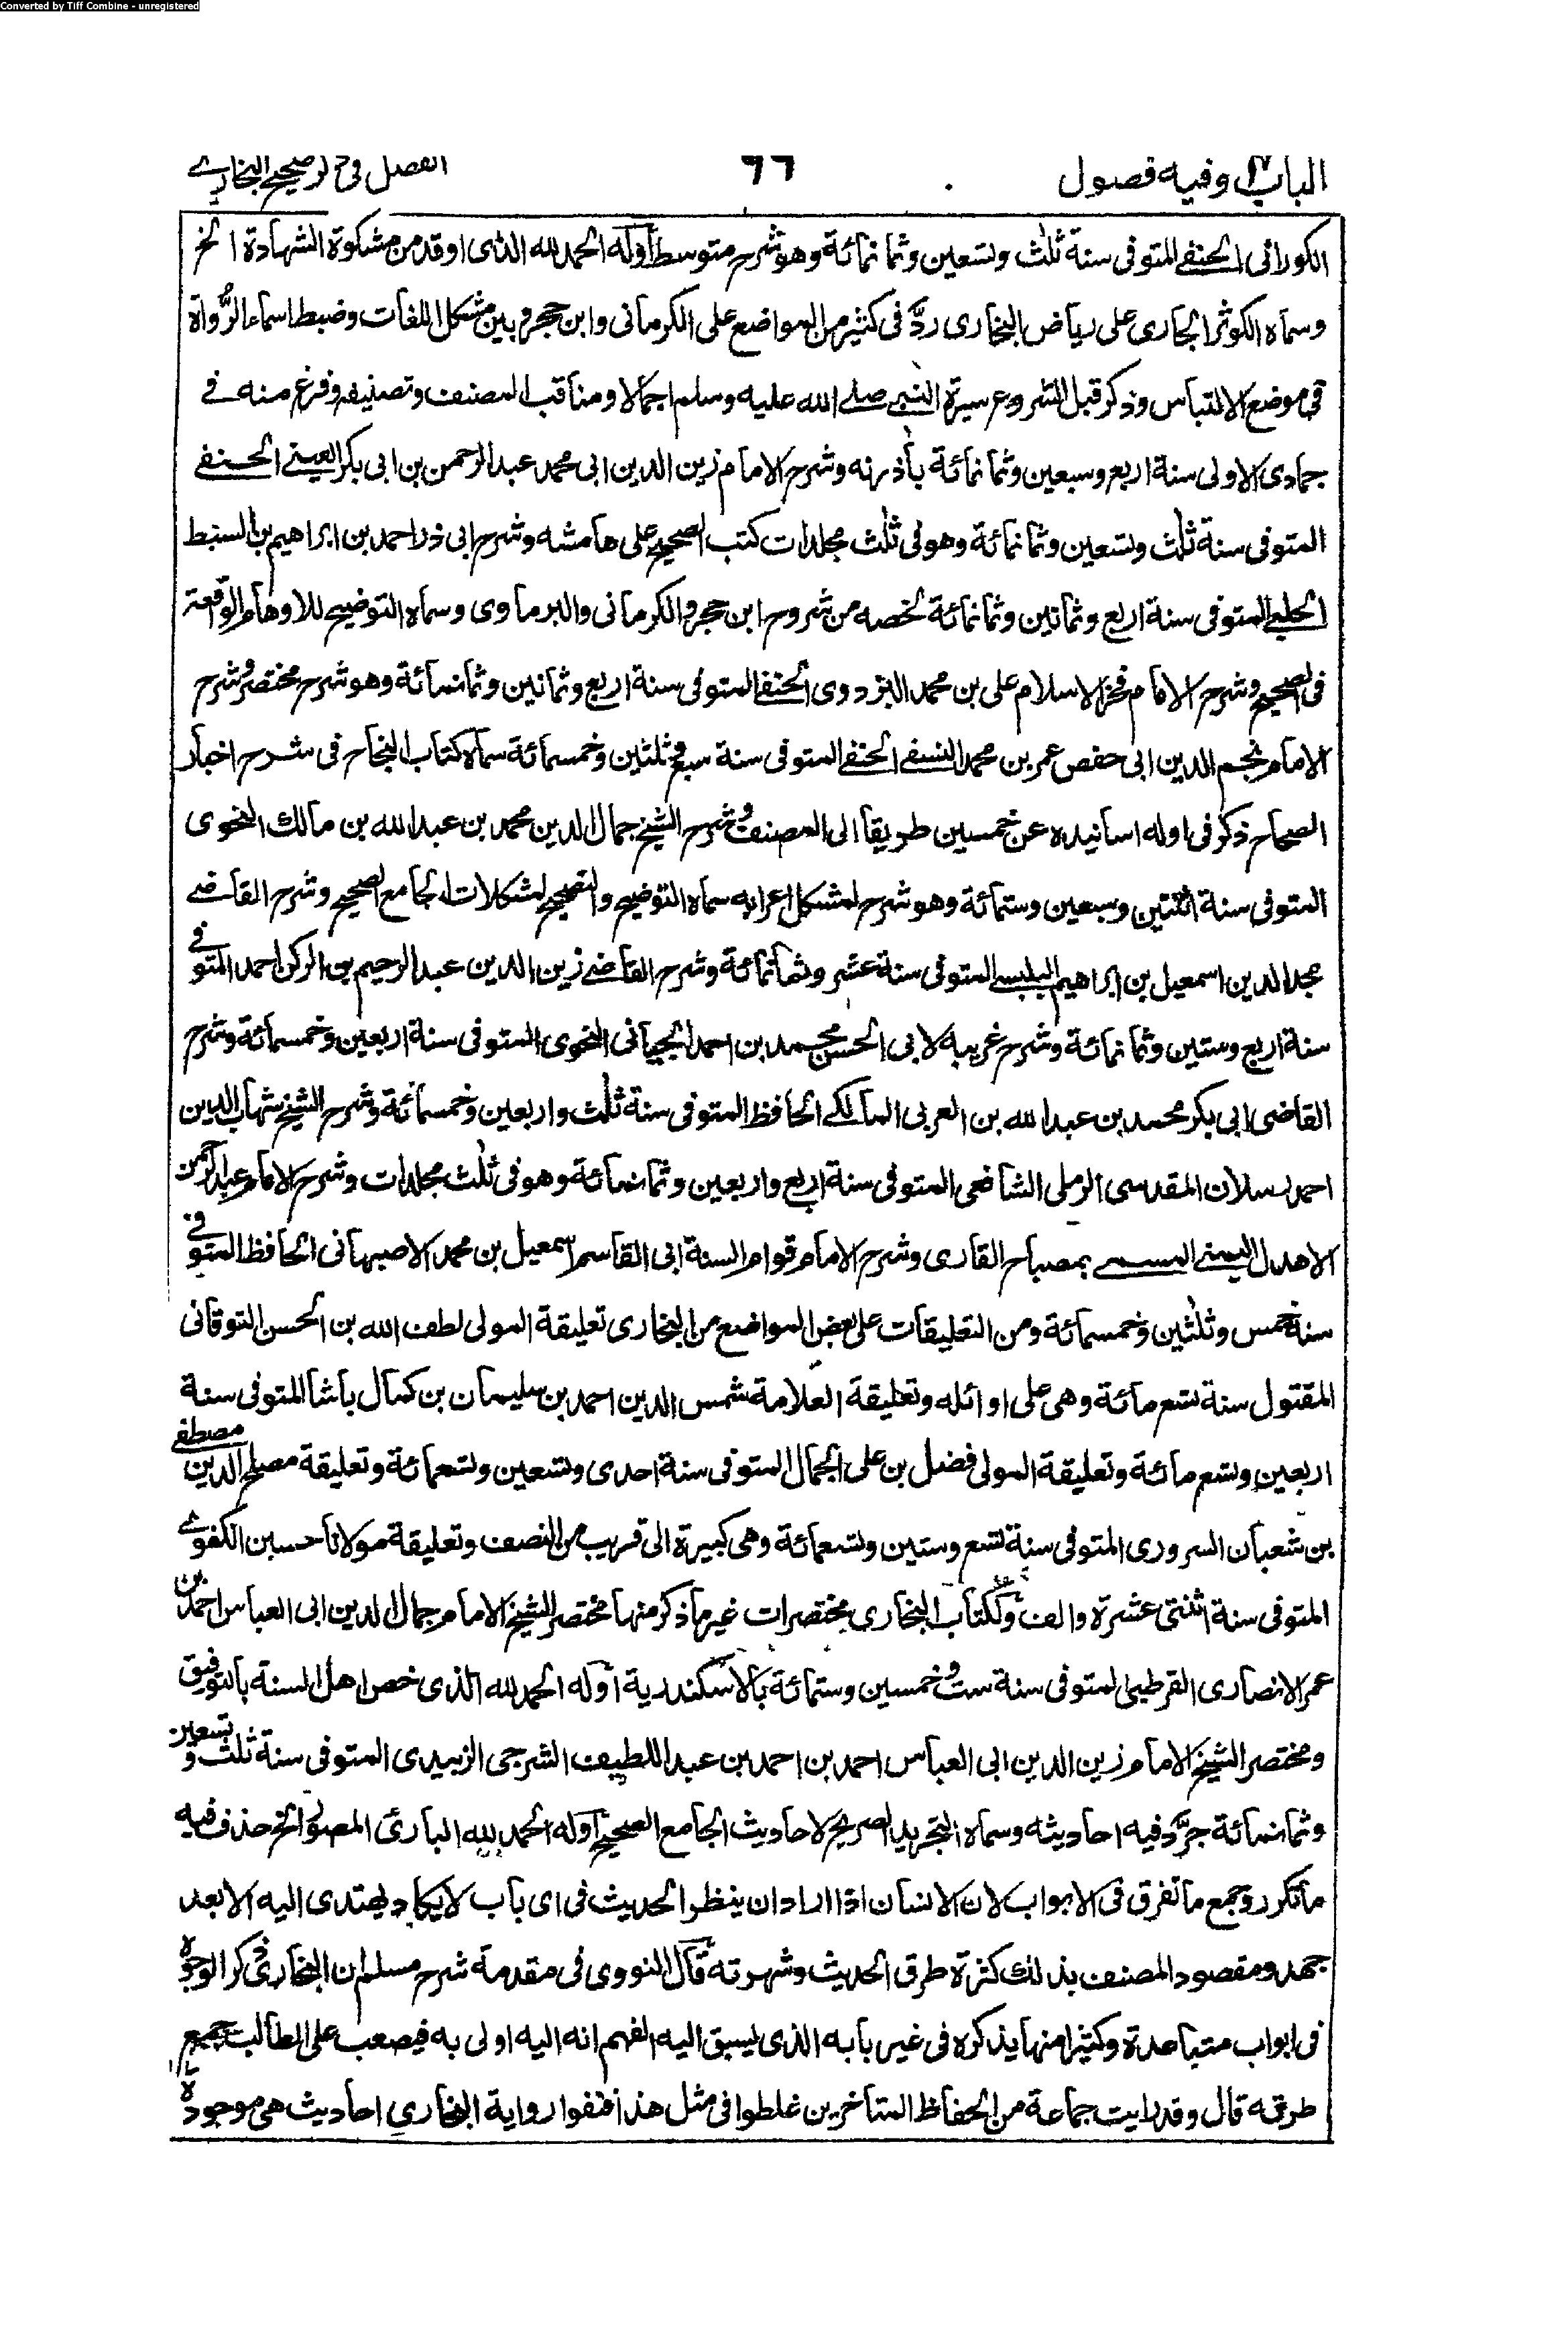 Converted by Tiff Combine - unregistered
الباب وفيه فصول
٦٦
الفصل فى ذكر صحيح البخارے
الكورانى الحنفى المتوفى سنة ثلث وتسعين وثمانمائة وهو شرح متوسط اوله الحمد لله الذى اوقد من مشكوة الشهادة الخ
وسماه الكوثر الجارى على رياض البخارى ردّ فى كثير من المواضع على الكرمانى وابن حجر وبين مشكل اللغات وضبط اسماء الرُّواة
فى موضع الالتباس وذكر قبل الشروع سيرة النبى صلے الله عليه وسلم اجمالا ومناقب المصنف وتصنيفه وفرغ منه فے
جمادى الاولى سنة اربع وسبعين وثمانمائة بأدرنه وشرح الامام زين الدين ابى محمد عبد الرحمن بن ابى بكر العينے الحنفے
المتوفى سنة ثلث وتسعين وثمانمائة وهو فى ثلث مجلدات كتب الصحيح على هامشه وشرح ابى ذر احمد بن ابراهيم بن السبط
الحلبے المتوفى سنة اربع وثمانين وثمانمائة لخصه من شروح ابن حجر والكرمانى والبرماوى وسماه التوضيح للاوهام الواقعة
فى الصحيح وشرح الامام فخر الاسلام على بن محمد البزدوى الحنفے المتوفى سنة اربع وثمانين وثمانمائة وهو شرح مختصر وشرح
الامام نجم الدين ابى حفص عمر بن محمد النسفے الحنفے المتوفى سنة سبع وثلثين وخمسمائة سماه كتاب النجاح فى شرح اخبار
الصحاح ذكر فى اوله اسانيده عن خمسين طريقا الى المصنف وشرح الشيخ جمال الدين محمد بن عبد الله بن مالك النحوى
المتوفى سنة اثنتين وسبعين وستمائة وهو شرح لمشكل اعرابه سماه التوضيح والتصحيح لمشكلات الجامع الصحيح وشرح القاضے
مجد الدين اسمعيل بن ابراهيم البلبسے المتوفى سنة عشر وثمانمائة وشرح القاضے زين الدين عبد الرحيم بن الركن احمد المتوفے
سنة اربع وستين وثمانمائة وشرح غريبه لابى الحسن محمد بن احمد الجيانى النحوى المتوفى سنة اربعين وخمسمائة وشرح
القاضى ابى بكر محمد بن عبد الله بن العربى المالكے الحافظ المتوفى سنة ثلث واربعين وخمسمائة وشرح الشيخ شهاب الدين
احمد رسلان المقدسى الرملى الشافعى المتوفى سنة اربع واربعين وثمانمائة وهو فى ثلث مجلدات وشرح الامام عبد الرحمن
الاهدل اليمنے المسمے بمصباح القارى وشرح الامام قوام السنة ابى القاسم اسمعيل بن محمد الاصبهانى الحافظ المتوفے
سنة خمس وثلثين وخمسمائة ومن التعليقات على بعض المواضع من البخارى تعليقة المولى لطف الله بن الحسن التوقانى
المقتول سنة تسع مائة وهى على اوائله وتعليقة العلامة شمس الدين احمد بن سليمان بن كمال باشا المتوفى سنة
اربعين وتسع مائة وتعليقة المولى فضل بن على الجمال المتوفى سنة احدى وتسعين وتسعمائة وتعليقة مصلح الدين مصطفے
بن شعبان السرورى المتوفى سنة تسع وستين وتسعمائة وهى كبيرة الى قريب من النصف وتعليقة مولانا حسين الكفوے
المتوفى سنة اثنتى عشرة والف ولكتاب البخارى مختصرات غير ما ذكر منها مختصر الشيخ الامام جمال الدين ابى العباس احمد بن
عمر الانصارى القرطبى المتوفى سنة ست وخمسين وستمائة بالاسكندرية اوله الحمد لله الذى خص اهل السنة بالتوفيق
ومختصر الشيخ الامام زين الدين ابى العباس احمد بن احمد بن عبد اللطيف الشرجى الزبيدى المتوفى سنة ثلث وتسعين
وثمانمائة جرَّد فيه احاديثه وسماه التجريد الصريح لاحاديث الجامع الصحيح اوله الحمد لله البارئ المصور الخ حذف فيه
ما تكرر وجمع ما تفرق فى الابواب لان الانسان اذا اراد ان ينظر الحديث فى اى باب لا يكاد يهتدى اليه الا بعد
جهد ومقصود المصنف بذلك كثرة طرق الحديث وشهرته قال النووى فى مقدمة شرح مسلم ان البخارى ذكر الوجوه
فى ابواب متباعدة وكثيرا منها يذكره فى غير بابه الذى يسبق اليه الفهم انه اليه اولى به فيصعب على الطالب جمع
طرقه قال وقد رايت جماعة من الحفاظ المتأخرين غلطوا فى مثل هذا فنفوا رواية البخارى احاديث هى موجودة